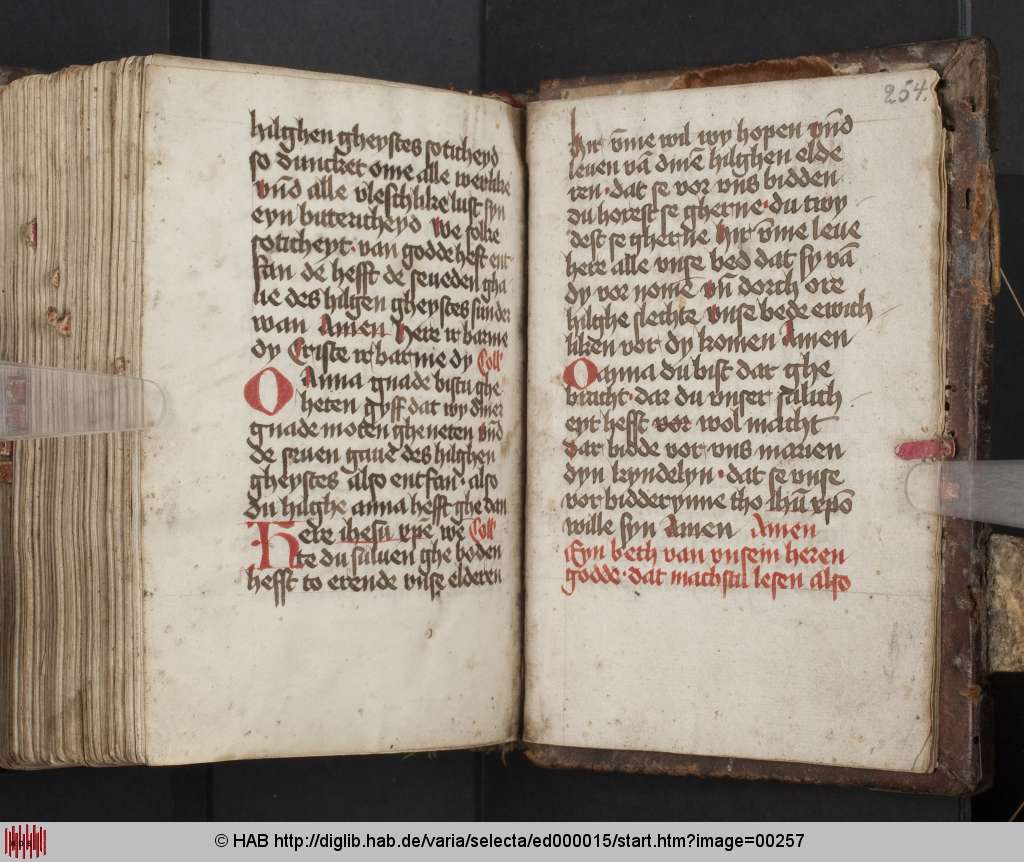 hilghen gheystes soticheyd
so duncket ome alle werlike
vnd alle vleschlike lust syn
eyn bittericheyd We solke
soticheyt · van godde heft ent
fan de hefft de seueden gha
ue des hilgen gheystes sunder
wan Amen Here irbarme
dy Criste irbarme dy Coll'
O Anna gnade bistu ghe
heten gyff dat wy diner
gnade moten gheneten vnd
de seuen gaue des hilghen
gheystes also entfan · also
du hilghe anna hefft ghe dan
Here ihesu xpe, we Coll'
te du suluen ghe boden
hefft to erende vnse elderen
254.
Hir vme wil wy hopen vnd
leuen vā dinē hilghen elde
ren · dat se vor vns bidden
du horest se gherne · du twy
dest se gherne Hir vme leue
here alle vnse bed dat sy vā
dy vor nomē vn dorch ore
hilghe slechte vnse bede ewich
liken vor dy komen Amen
O anna du bist dar ghe
bracht · dar du vnser salich
eyt hefft vor wol macht
dar bidde vor vns marien
dyn kyndelyn · dat se vnse
vorbidderynne tho ihū xpō
wille syn Amen Amen
Eyn beth van vnsem heren
godde · dat machstu lesen also
© HAB http://diglib.hab.de/varia/selecta/ed000015/start.htm?image=00257